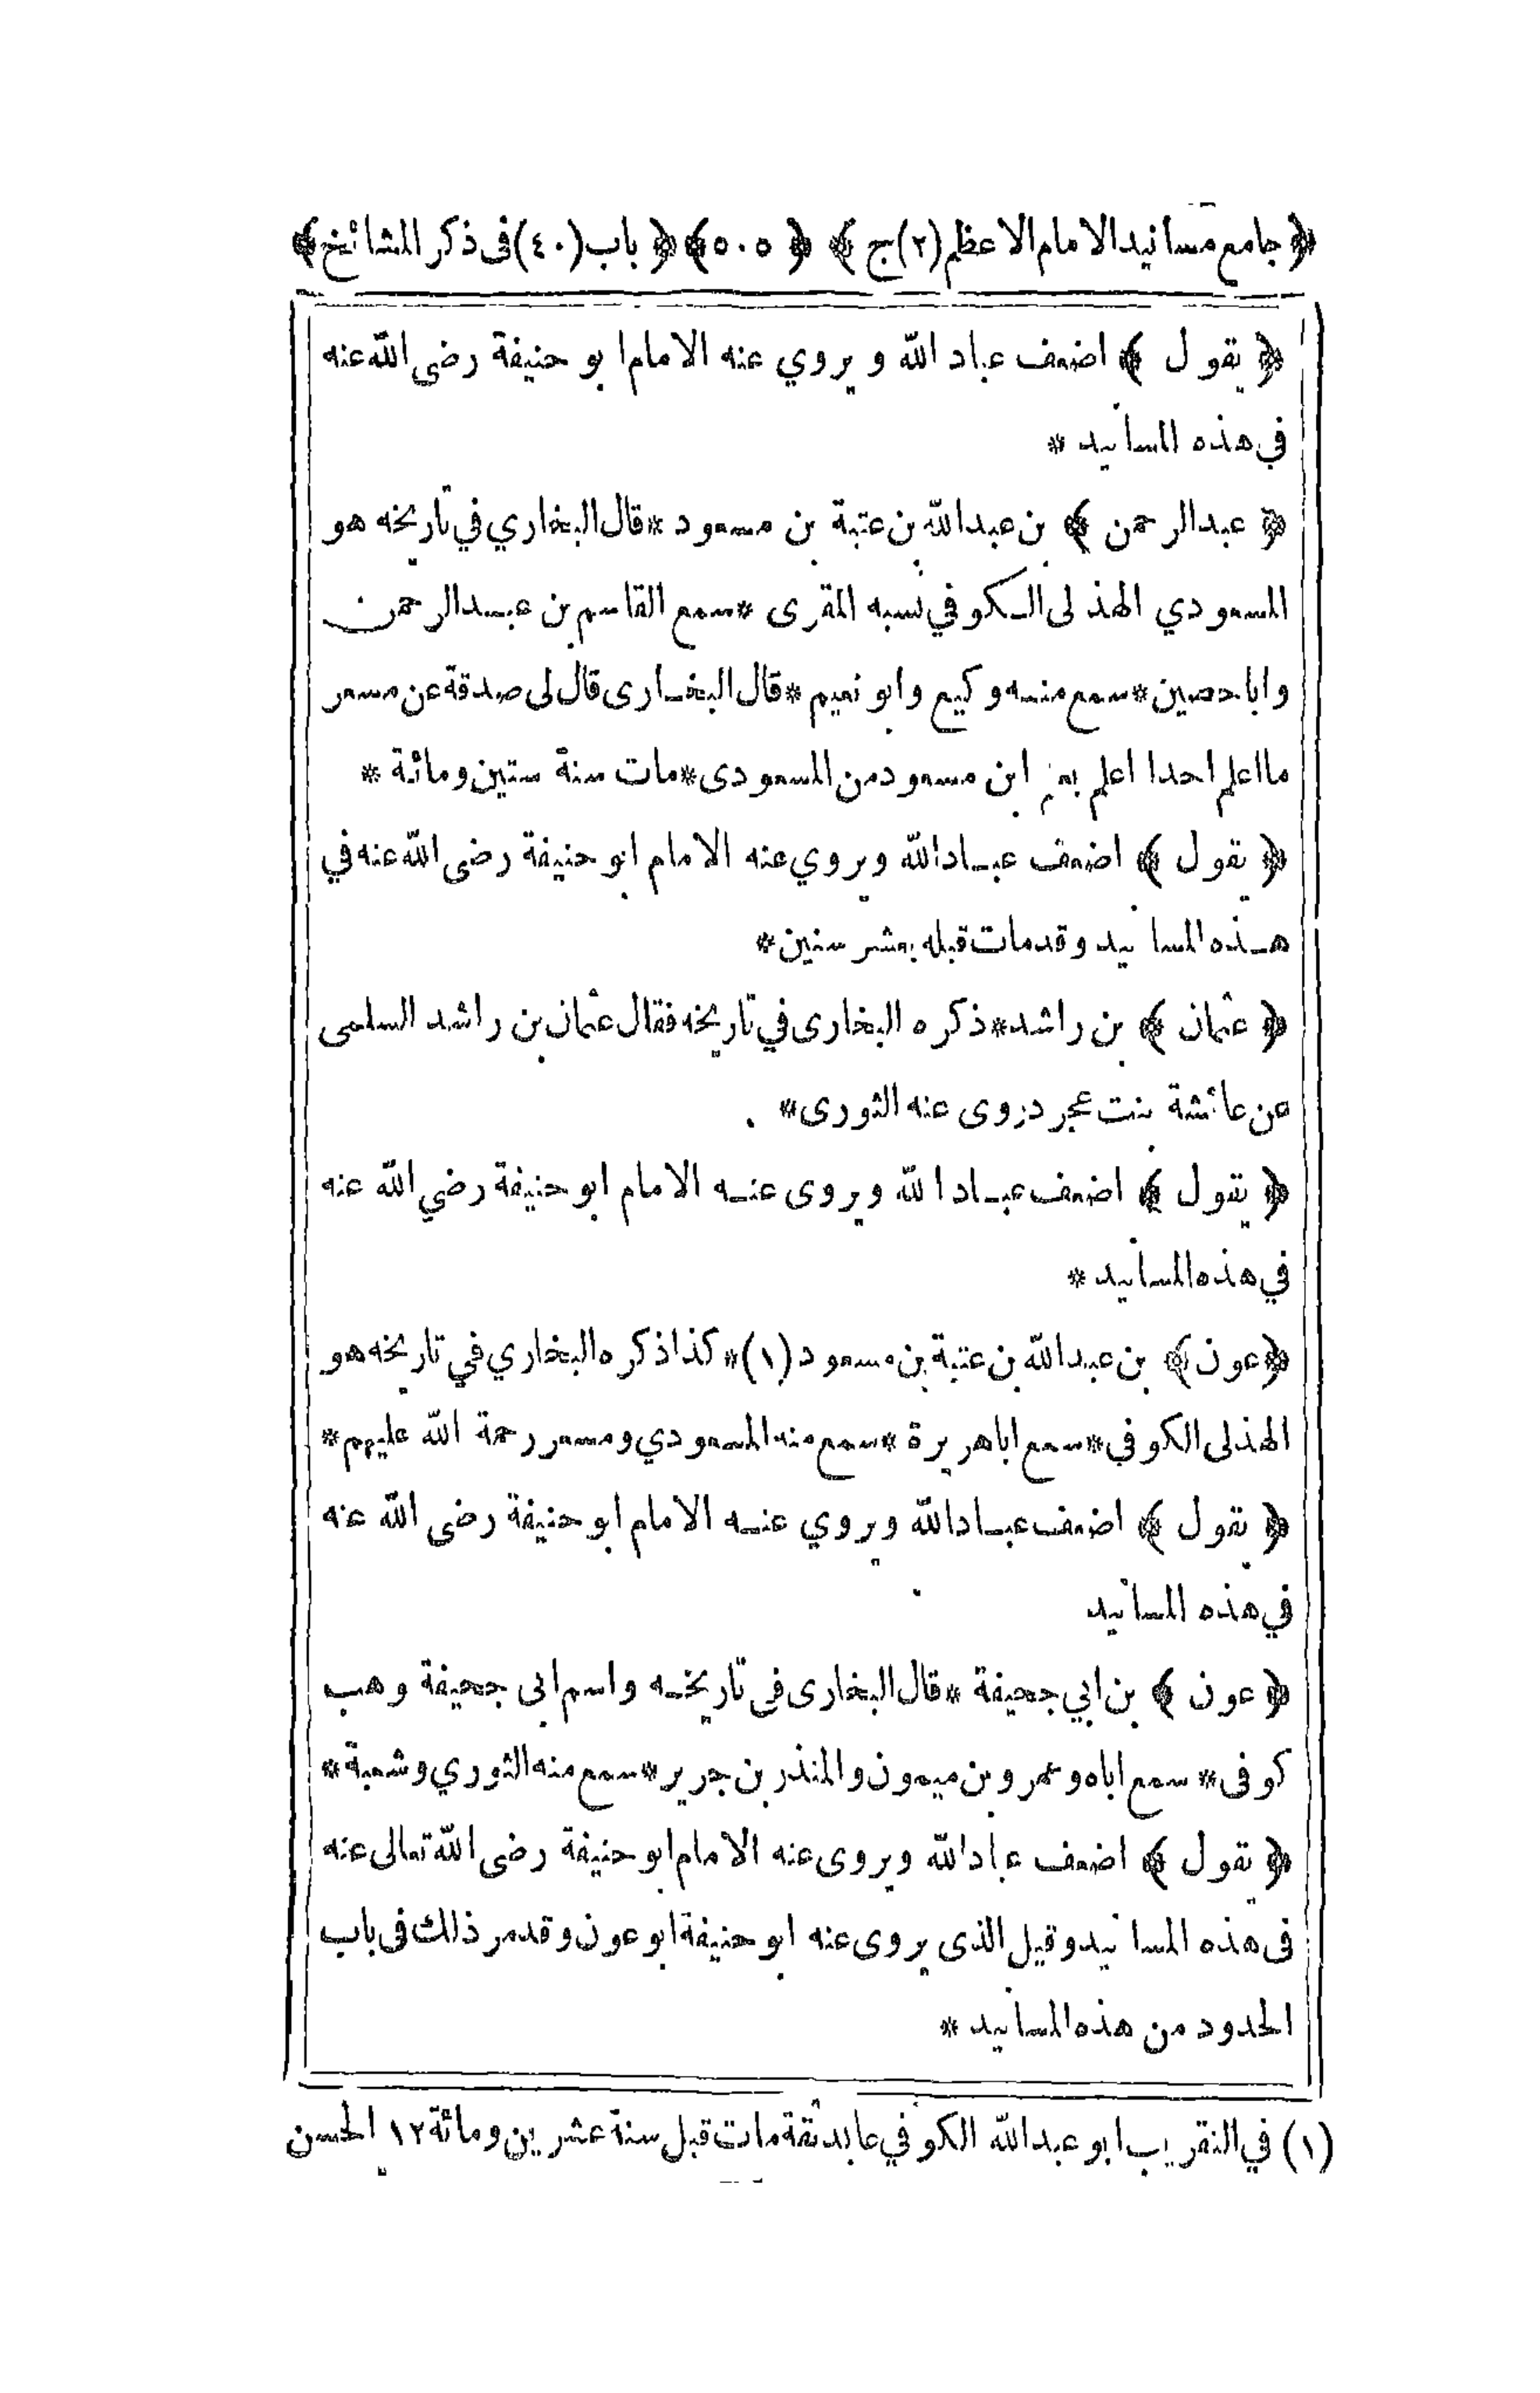 ﴿ جامع مسانيد الامام الاعظم (٢) ج ﴾ ﴿ ٥٠٥ ﴾ ﴿ باب (٤٠) فى ذكر المشائخ ﴾
﴿ يقول ﴾ اضعف عباد الله و يروي عنه الامام ابو حنيفة رضى الله عنه
في هذه المسانيد *
﴿ عبد الرحمن ﴾ بن عبد الله بن عتبة بن مسعود * قال البخاري في تاريخه هو
المسعودي الهذلى الكوفي نسبه المقرى * سمع القاسم بن عبد الرحمن
وابا حصين * سمع منه وكيع وابو نعيم * قال البخارى قال لى صدقة عن مسعر
ما اعلم احدا اعلم بعلم ابن مسعود من المسعودى * مات سنة ستين ومائة *
﴿ يقول ﴾ اضعف عباد الله ويروي عنه الامام ابو حنيفة رضى الله عنه في
هذه المسانيد وقد مات قبله بعشر سنين *
﴿ عثمان ﴾ بن راشد * ذكره البخارى في تاريخه فقال عثمان بن راشد السلمى
عن عائشة بنت عجرد روى عنه الثورى *
﴿ يقول ﴾ اضعف عباد الله ويروى عنه الامام ابو حنيفة رضي الله عنه
في هذه المسانيد *
﴿ عون ﴾ بن عبد الله بن عتبة بن مسعود (١) * كذا ذكره البخاري في تاريخه هو
الهذلى الكوفي * سمع ابا هريرة * سمع منه المسعودي ومسعر رحمة الله عليهم *
﴿ يقول ﴾ اضعف عباد الله ويروي عنه الامام ابو حنيفة رضى الله عنه
في هذه المسانيد
﴿ عون ﴾ بن ابي جحيفة * قال البخارى فى تاريخه واسم ابى جحيفة وهب
كوفى * سمع اباه وعمرو بن ميمون والمنذر بن جرير * سمع منه الثوري وشعبة *
﴿ يقول ﴾ اضعف عباد الله ويروى عنه الامام ابو حنيفة رضى الله تعالى عنه
فى هذه المسانيد وقيل الذى يروى عنه ابو حنيفة ابو عون وقد مر ذلك فى باب
الحدود من هذه المسانيد *
(١) في التقريب ابو عبد الله الكوفي عابد ثقة مات قبل سنة عشرين ومائة ١٢ الحسن